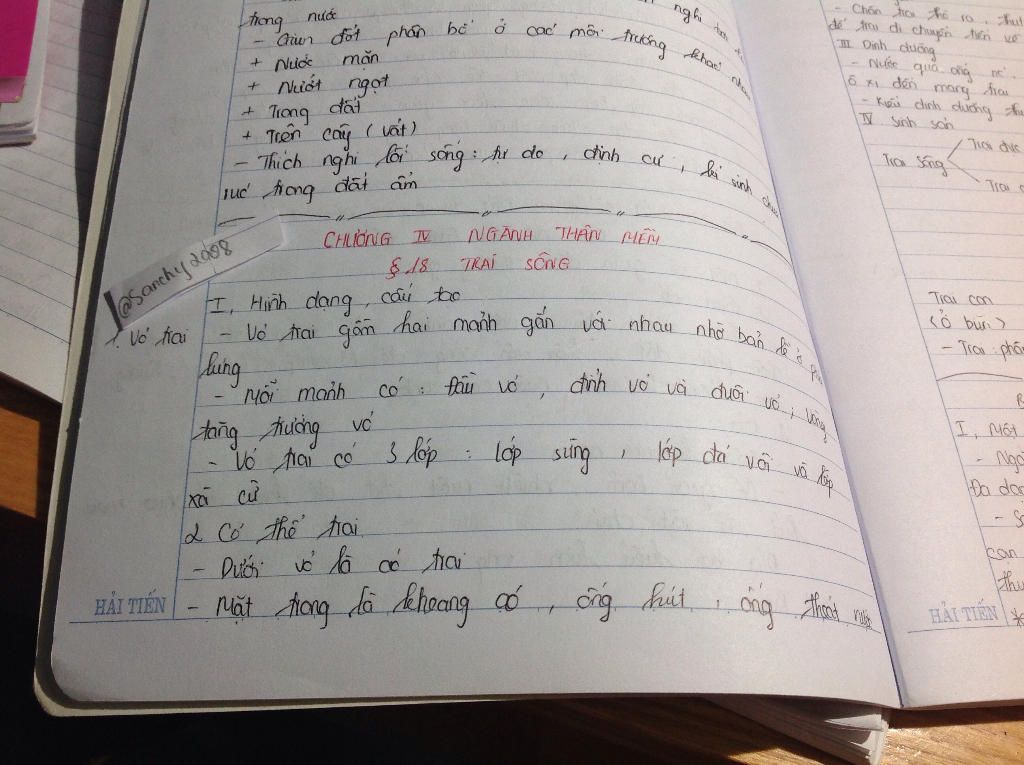 trong nước
- Giun đốt phân bố ở các môi trường khác nhau
+ Nước mặn
+ Nướt ngọt
+ Trong đất
+ Trên cây (vắt)
- Thích nghi lối sống: tự do, định cư, kí sinh, chui
rúc trong đất ẩm
CHƯƠNG IV NGÀNH THÂN MỀM
§ 18 TRAI SÔNG
@Sanchy2008
I, Hình dạng, cấu tạo
1. Vỏ trai - Vỏ trai gồm hai mảnh gắn với nhau nhờ bản lề ở
lưng
- Mỗi mảnh có: Đầu vỏ, đỉnh vỏ và đuôi vỏ, vòng
tăng trưởng vỏ
- Vỏ trai có 3 lớp: lớp sừng, lớp đá vôi và lớp
xà cừ
2 Cơ thể trai
- Dưới vỏ là áo trai
- Mặt trong là khoang áo, ống hút, ống thoát nước
HẢI TIẾN
đế trai di chuyển tiến về
III Dinh dưỡng
- Nước qua ống
ô xi đến mang trai
- Kiểu dinh dưỡng
IV Sinh sản
Trai đực
Trai sông
Trai
Trai con
(ở bùn)
- Trai: phân
I, Một
Đa dạng
HẢI TIẾN